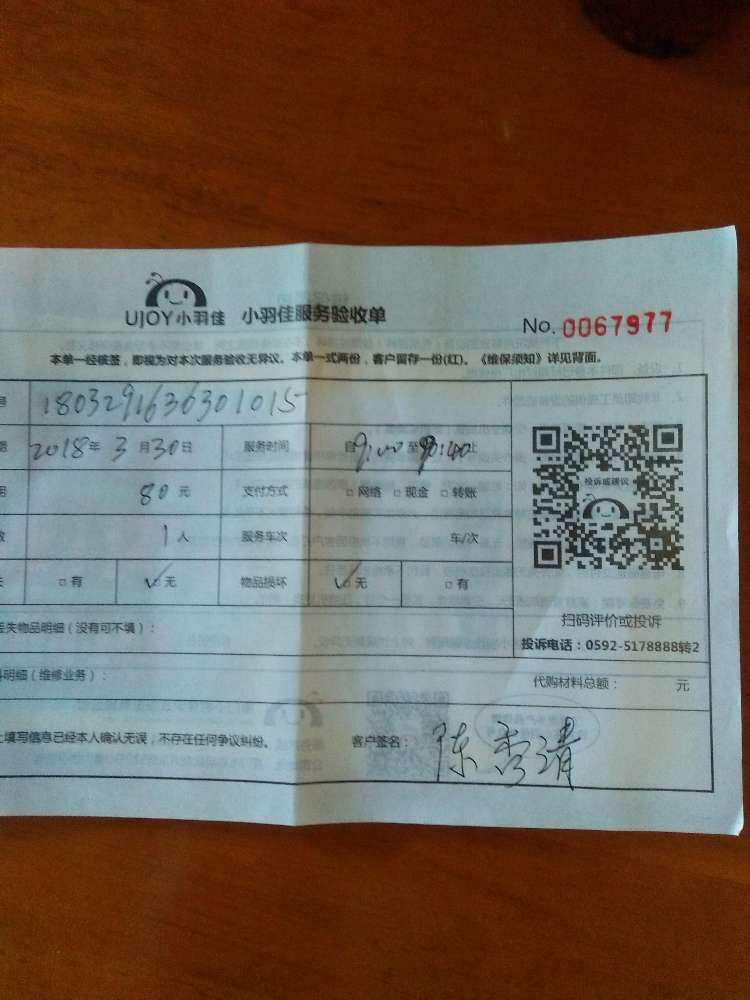 UJOY小羽佳 小羽佳服务验收单
No. 0067977
本单一经核签，即视为对本次服务验收无异议。本单一式两份，客户留存一份(红)。《维保须知》详见背面。
号 1803291636301015
期 2018年 3月30日 服务时间 自9:00至 :40止
用 80元 支付方式 □网络 □现金 □转账
数 1人 服务车次 车/次
失 □有 ☑无 物品损坏 ☑无 □有
投诉或建议
扫码评价或投诉
投诉电话：0592-5178888转2
丢失物品明细（没有可不填）：
料明细（维修业务）： 代购材料总额： 元
上填写信息已经本人确认无误，不存在任何争议纠纷。 客户签名：陈秀清